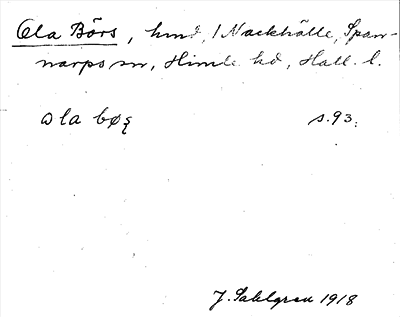 Ola Börs, hmd, i Nackhälle, Span-
narps sn, Himle hd, Hall. l.
ɷla bøş s.93.
J. Sahlgren 1918